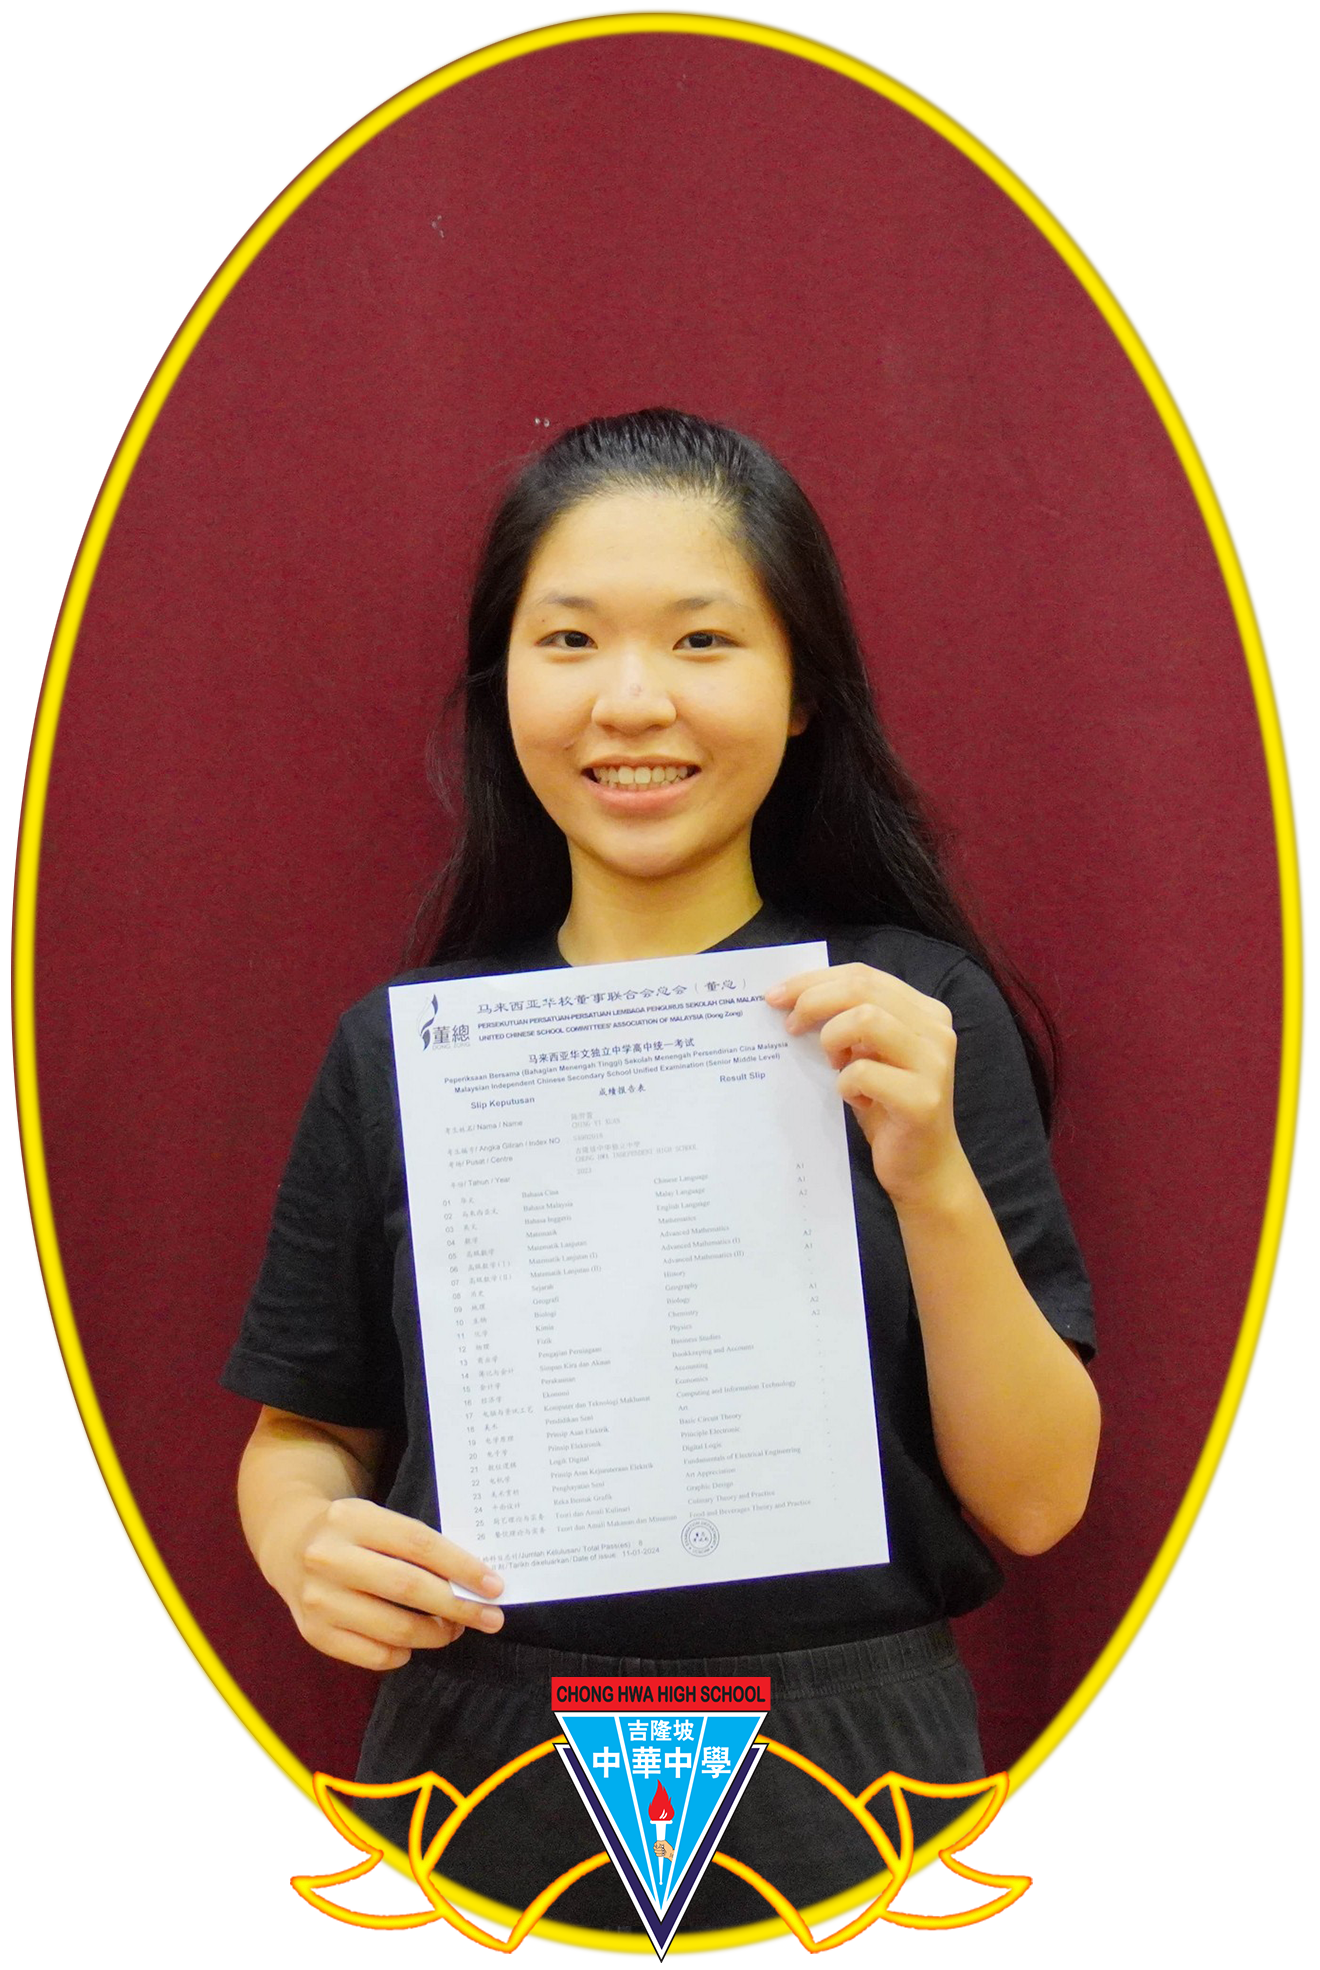 董總
DONG ZONG
马来西亚华校董事联合会总会（董总）
PERSEKUTUAN PERSATUAN-PERSATUAN LEMBAGA PENGURUS SEKOLAH CINA MALAYSIA
UNITED CHINESE SCHOOL COMMITTEES' ASSOCIATION OF MALAYSIA (Dong Zong)
马来西亚华文独立中学高中统一考试
Peperiksaan Bersama (Bahagian Menengah Tinggi) Sekolah Menengah Persendirian Cina Malaysia
Malaysian Independent Chinese Secondary School Unified Examination (Senior Middle Level)
Slip Keputusan 成绩报告表 Result Slip
考生姓名/ Nama / Name
考生编号/ Angka Giliran / Index NO
考场/ Pusat / Centre 吉隆坡中华独立中学
CHONG HWA INDEPENDENT HIGH SCHOOL
年份/ Tahun / Year 2023
01 华文 Bahasa Cina Chinese Language A1
02 马来西亚文 Bahasa Malaysia Malay Language A1
03 英文 Bahasa Inggeris English Language A2
04 数学 Matematik Mathematics -
05 高级数学 Matematik Lanjutan Advanced Mathematics -
06 高级数学(I) Matematik Lanjutan (I) Advanced Mathematics (I) A2
07 高级数学(II) Matematik Lanjutan (II) Advanced Mathematics (II) A1
08 历史 Sejarah History -
09 地理 Geografi Geography -
10 生物 Biologi Biology A1
11 化学 Kimia Chemistry A2
12 物理 Fizik Physics A2
13 商业学 Pengajian Perniagaan Business Studies -
14 簿记与会计 Simpan Kira dan Akaun Bookkeeping and Accounts -
15 会计学 Perakaunan Accounting -
16 经济学 Ekonomi Economics -
17 电脑与资讯工艺 Komputer dan Teknologi Maklumat Computing and Information Technology -
18 美术 Pendidikan Seni Art -
19 电学原理 Prinsip Asas Elektrik Basic Circuit Theory -
20 电子学 Prinsip Elektronik Principle Electronic -
21 数位逻辑 Logik Digital Digital Logic -
22 电机学 Prinsip Asas Kejuruteraan Elektrik Fundamentals of Electrical Engineering -
23 美术赏析 Penghayatan Seni Art Appreciation -
24 平面设计 Reka Bentuk Grafik Graphic Design -
25 厨艺理论与实务 Teori dan Amali Kulinari Culinary Theory and Practice -
26 餐饮理论与实务 Teori dan Amali Makanan dan Minuman Food and Beverages Theory and Practice -
/Jumlah Kelulusan/ Total Pass(es): 8
/Tarikh dikeluarkan/ Date of issue: 11-01-2024
CHONG HWA HIGH SCHOOL
吉隆坡
中華中學